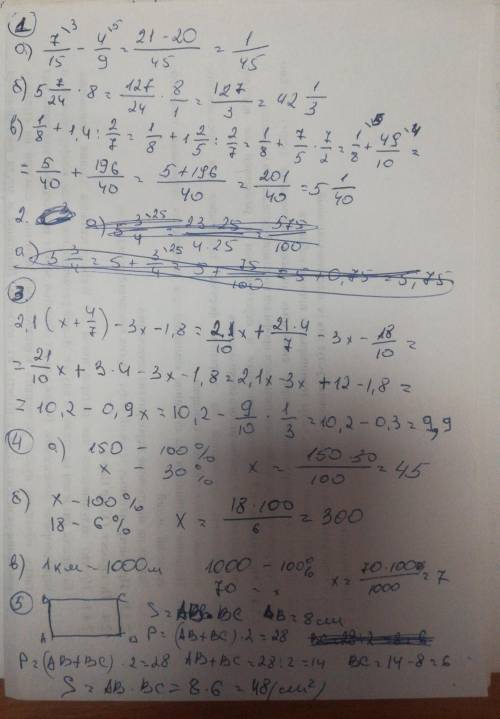 1
а) 7/15 - 4/9 = (21-20)/45 = 1/45
б) 5 7/24 · 8 = 127/24 · 8/1 = 127/3 = 42 1/3
в) 1/8 + 1,4 : 2/7 = 1/8 + 1 2/5 : 2/7 = 1/8 + 7/5 · 7/2 = 1/8 + 49/10 =
= 5/40 + 196/40 = (5+196)/40 = 201/40 = 5 1/40
2. а) 5 3/4 = 23·25/4·25 = 575/100
а) 5 3/4 = 5 + 3/4 = 5 + 75/100 = 5 + 0,75 = 5,75
3
2,1(x + 4/7) - 3x - 1,8 = 21/10 x + 21·4/7 - 3x - 18/10 =
= 21/10 x + 3·4 - 3x - 1,8 = 2,1x - 3x + 12 - 1,8 =
= 10,2 - 0,9x = 10,2 - 9/10 · 1/3 = 10,2 - 0,3 = 9,9
4 а) 150 - 100%
x - 30% x = 150·30/100 = 45
б) x - 100%
18 - 6% x = 18·100/6 = 300
в) 1 км - 1000 м 1000 - 100%
70 - x x = 70·100/1000 = 7
5 B C S = AB · BC AB = 8 см
A D P = (AB+BC)·2 = 28
P = (AB+BC)·2 = 28 AB+BC = 28:2 = 14 BC = 14-8 = 6
S = AB·BC = 8·6 = 48 (см²)